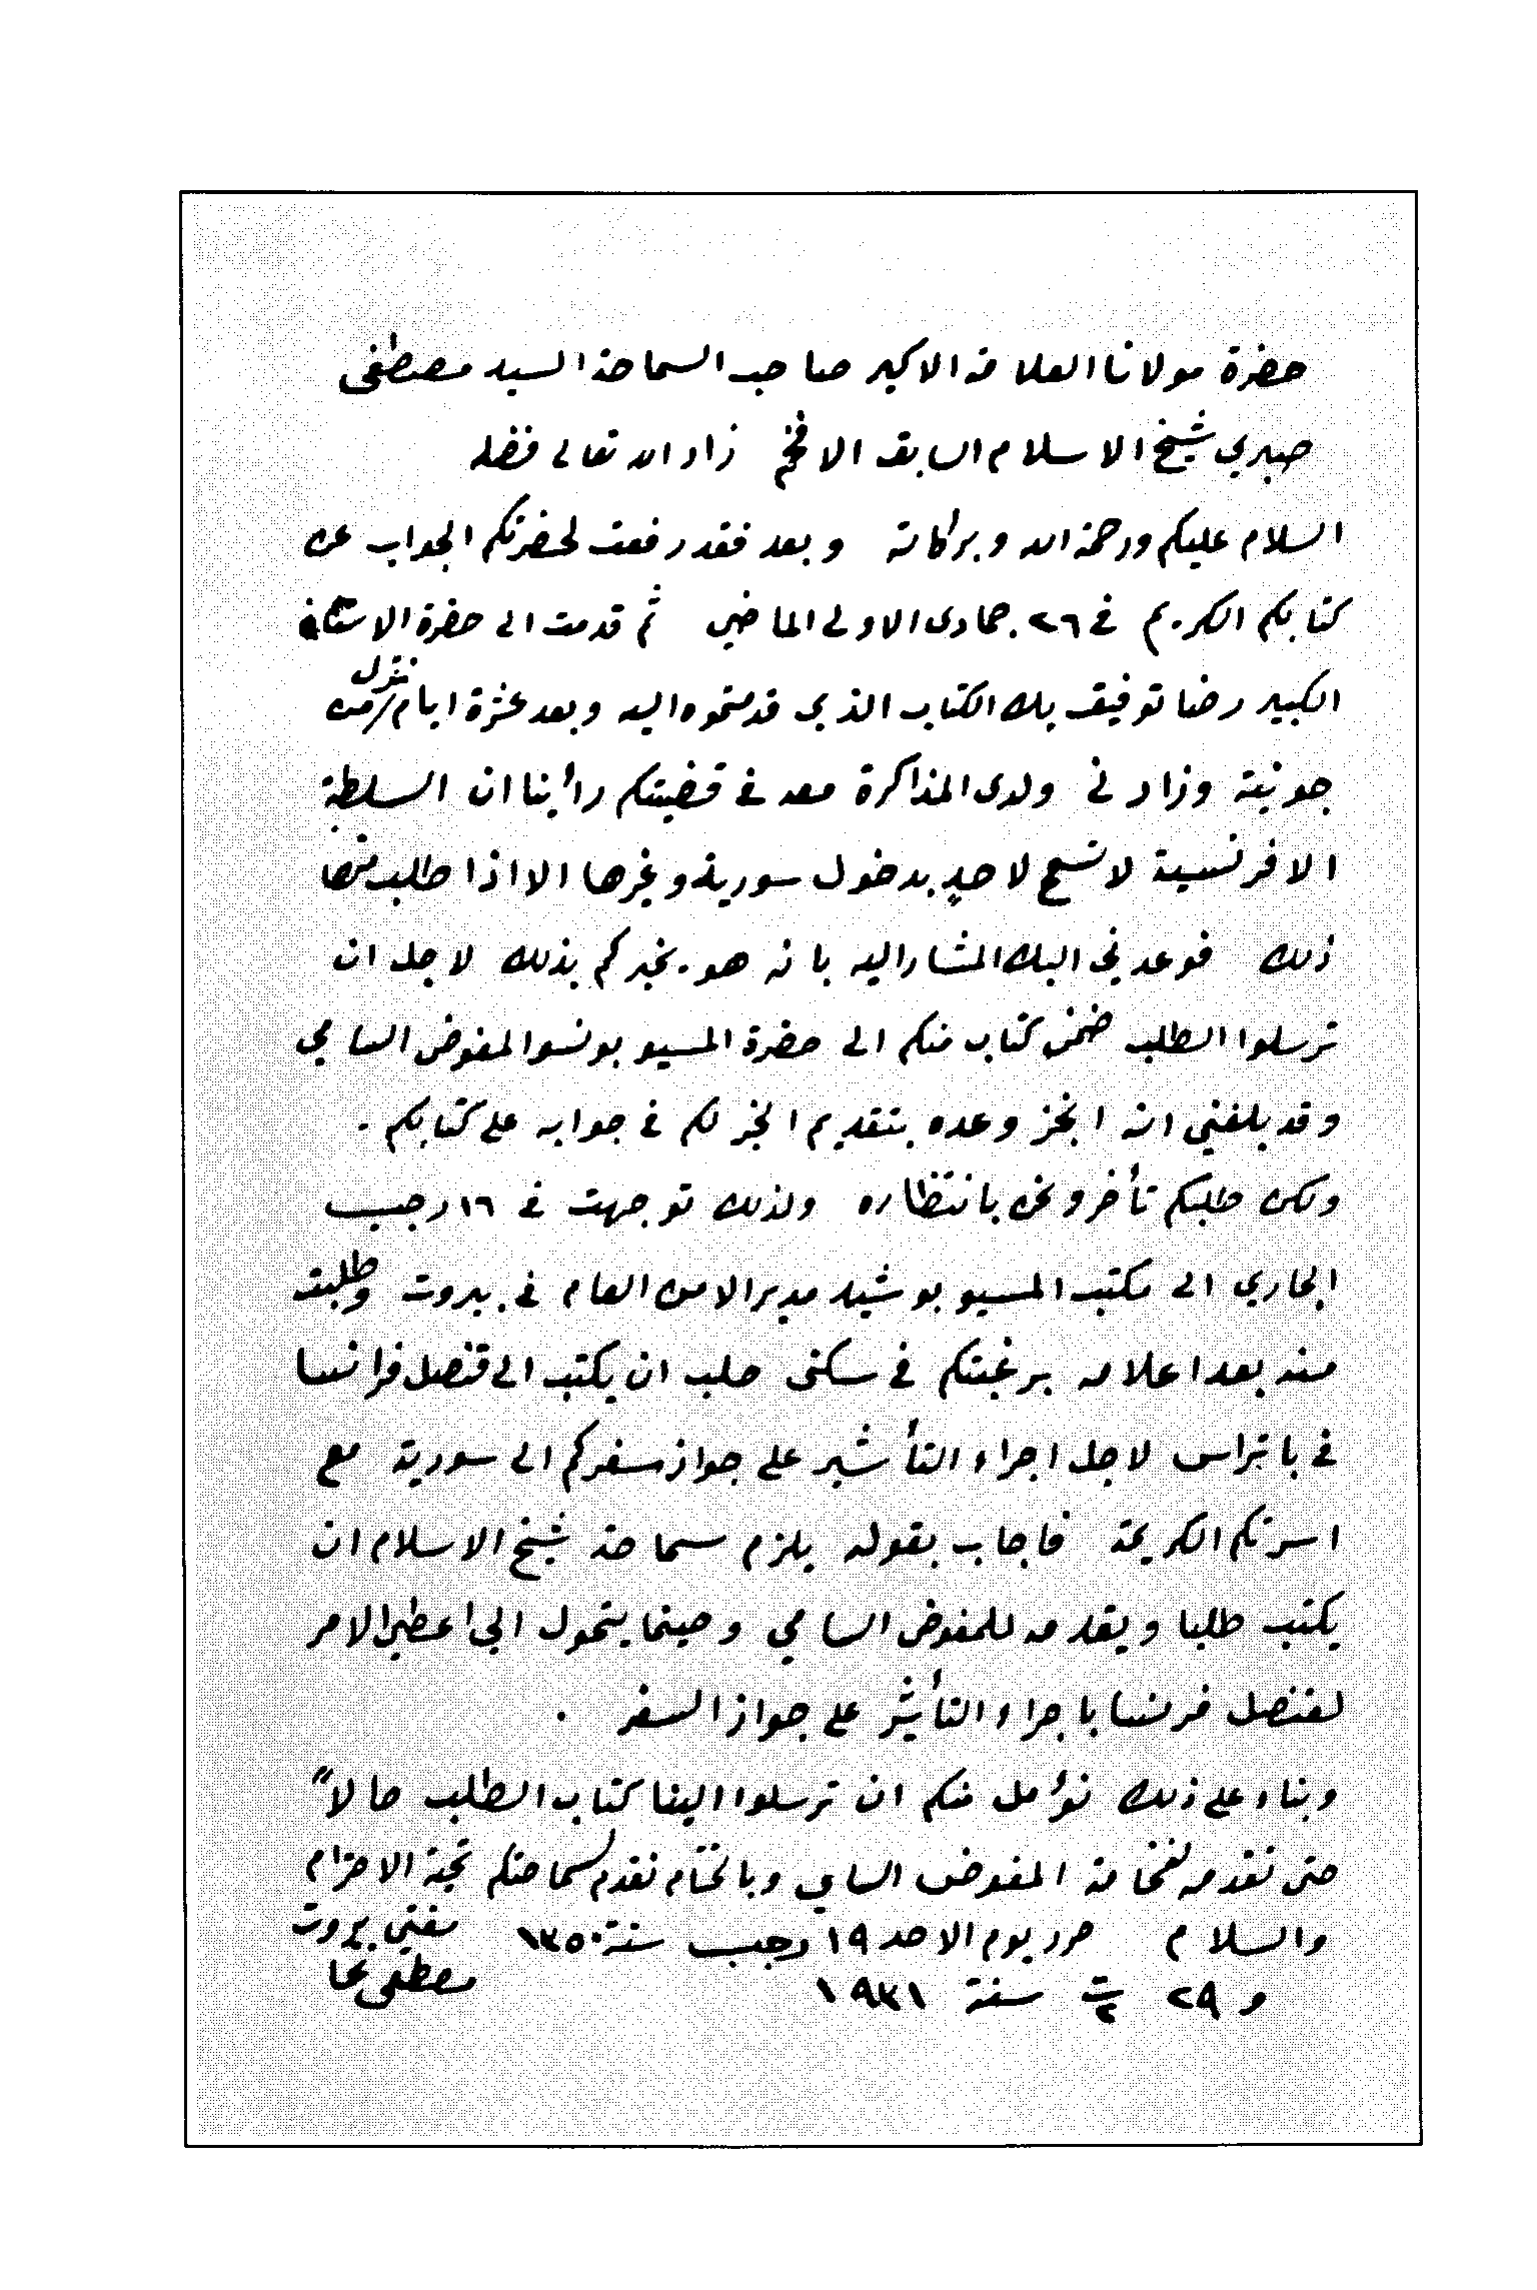 حضرة مولانا العلامة الاكبر صاحب السماحة السيد مصطفى
صبري شيخ الاسلام السابق الافخم زاد الله تعالى فضله
السلام عليكم ورحمة الله وبركاته وبعد فقد رفعت لحضرتكم الجواب عن
كتابكم الكريم في ٢٦ جمادى الاولى الماضي ثم قدمت الى حضرة الاستاذ
الكبير رضا توفيق بك الكتاب الذي قدمتموه اليه وبعد عشرة ايام نزل من
جونية وزارني ولدى المذاكرة معه في قضيتكم رأينا ان السلطة
الافرنسية لا تسمح لاحدٍ بدخول سورية وغيرها الا اذا طلب منها
ذلك فوعدني البك المشار اليه بانه هو يخبركم بذلك لاجل ان
ترسلوا الطلب ضمن كتاب منكم الى حضرة المسيو بونسو المفوض السامي
وقد بلغني انه انجز وعده بتقديم الخبر لكم في جوابه على كتابكم .
ولكن طلبكم تأخر ونحن بانتظاره ولذلك توجهت في ١٦ رجب
الجاري الى مكتب المسيو بوشيد مدير الامن العام في بيروت وطلبت
منه بعد اعلامه برغبتكم في سكنى حلب ان يكتب الى قنصل فرانسا
في باتراس لاجل اجراء التأشير على جواز سفركم الى سورية مع
اسرتكم الكريمة فاجاب بقوله يلزم سماحة شيخ الاسلام ان
يكتب طلبا ويقدمه للمفوض السامي وحينما يتحول الي اعطي الامر
لقنصل فرنسا باجراء التأشير على جواز السفر .
وبناء على ذلك نؤمل منكم ان ترسلوا الينا كتاب الطلب حالاً
حتى نقدمه لفخامة المفوض السامي وبالختام نقدم لسماحتكم تحية الاحترام
والسلام حرر يوم الاحد ١٩ رجب سنة ١٣٥٠ مفتي بيروت
و ٢٩ ت٢ سنة ١٩٣١ مصطفى نجا